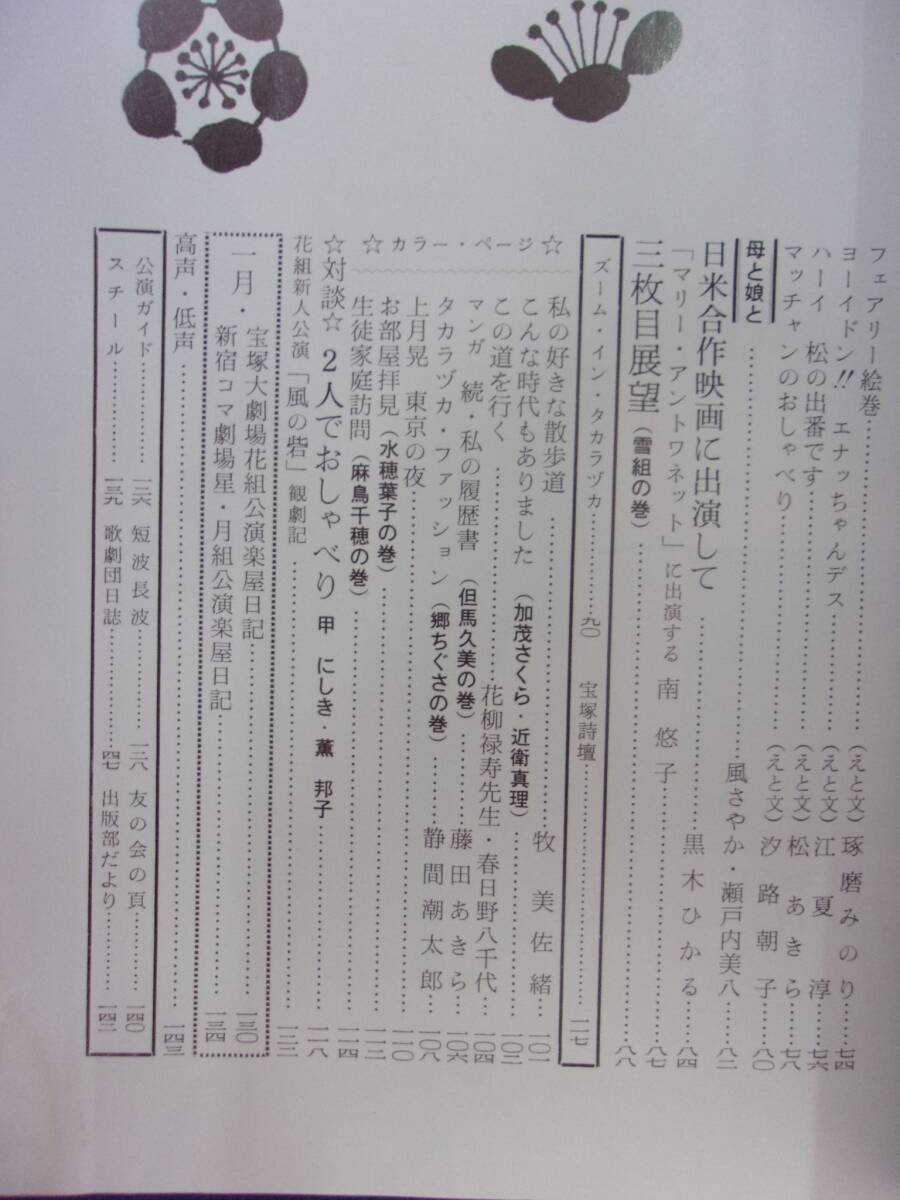 フェアリー絵巻……………(えと文)琢磨みのり……七四
ヨーイドン!! エナッちゃんデス………(えと文)江夏淳……七六
ハーイ 松の出番です……………(えと文)松あきら……七八
マッチャンのおしゃべり……………(えと文)汐路朝子……八〇
母と娘と……………風さやか・瀬戸内美八……八二
日米合作映画に出演して……………黒木ひかる……八四
「マリー・アントワネット」に出演する 南悠子……………八七
三枚目展望(雪組の巻)……………八八
ズーム・イン・タカラヅカ……………九〇 宝塚詩壇……………一一七
☆カラー・ページ☆
私の好きな散歩道……………牧美佐緒……一〇一
こんな時代もありました(加茂さくら・近衛真理)……………一〇二
この道を行く……………花柳禄寿先生・春日野八千代……一〇四
マンガ 続・私の履歴書(但馬久美の巻)……………藤田あきら……一〇六
タカラヅカ・ファッション(郷ちぐさの巻)……………静間潮太郎……一〇八
上月晃 東京の夜……………一一〇
お部屋拝見(水穂葉子の巻)……………一一二
生徒家庭訪問(麻鳥千穂の巻)……………一一四
☆対談☆ 2人でおしゃべり 甲にしき・薫邦子……………一一八
花組新人公演「風の砦」観劇記……………一二二
一月・宝塚大劇場花組公演楽屋日記……………一三〇
新宿コマ劇場星・月組公演楽屋日記……………一三四
高声・低声……………一四三
公演ガイド……………一二六 短波長波……………一三八 友の会の頁……………一四〇
スチール……………一三九 歌劇団日誌……………一四七 出版部だより……………一四二